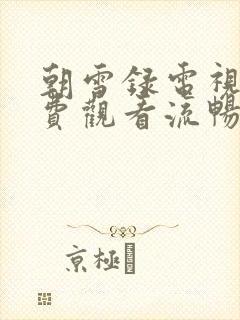 朝雪録電視
費觀看流暢
京極